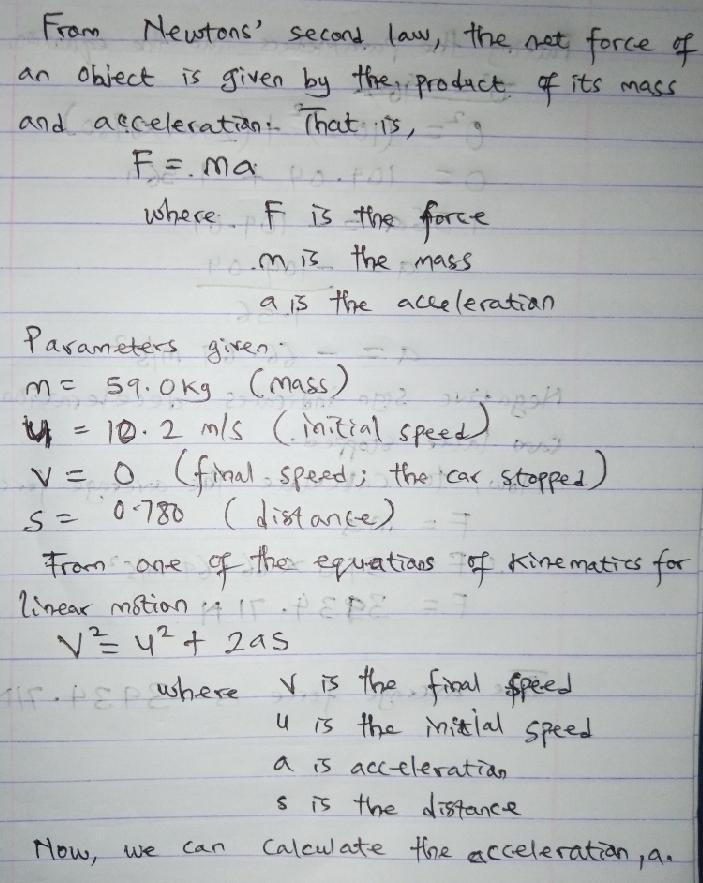 From Newtons' second law, the net force of
an object is given by the product of its mass
and acceleration. That is,
F = ma
where F is the force
m is the mass
a is the acceleration
Parameters given:
m = 59.0kg (mass)
u = 10.2 m/s (initial speed)
v = 0 (final speed; the car stopped)
s = 0.780 (distance)
From one of the equations of kinematics for
linear motion;
v² = u² + 2as
where v is the final speed
u is the initial speed
a is acceleration
s is the distance
Now, we can calculate the acceleration, a.